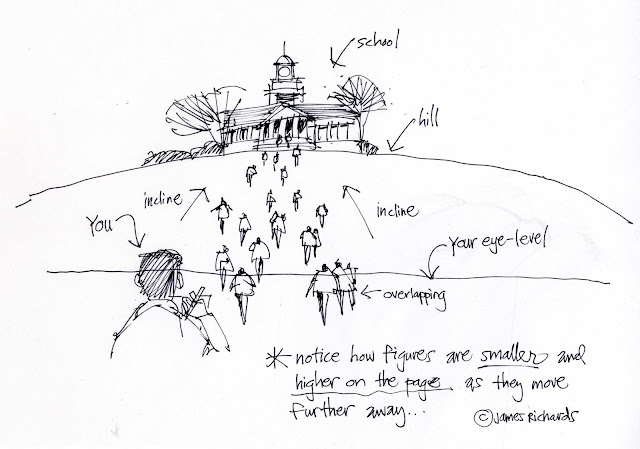 school
hill
incline
incline
You
your eye-level
overlapping
* notice how figures are smaller and
higher on the page as they move
further away...
© James Richards